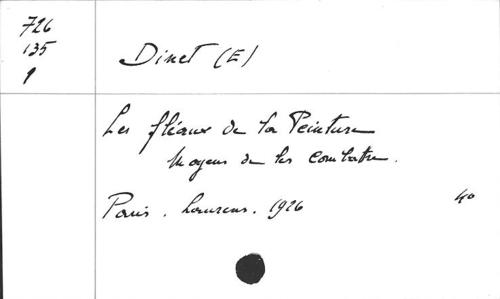 726
135
9
Dinet (E)
Les fléaux de la Peinture
Moyens de les combattre.
Paris. Laurens. 1926 4º